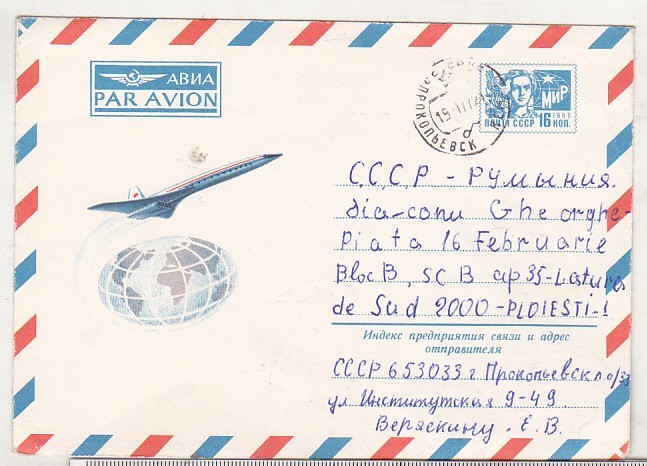 АВИА
PAR AVION
ПРОКОПЬЕВСК
МИР
1966
ПОЧТА СССР 16 КОП.
СССР - РУМЫНИЯ.
dia-conu Gheorghe-
Piata 16 Februarie
Bloc B, SC B ap 35-Latura
de Sud 2000-PLOIESTI-1
Индекс предприятия связи и адрес
отправителя
СССР 653033 г Прокопьевск п.о/33
ул Институтская 9-49.
Веряскину. Е. В.